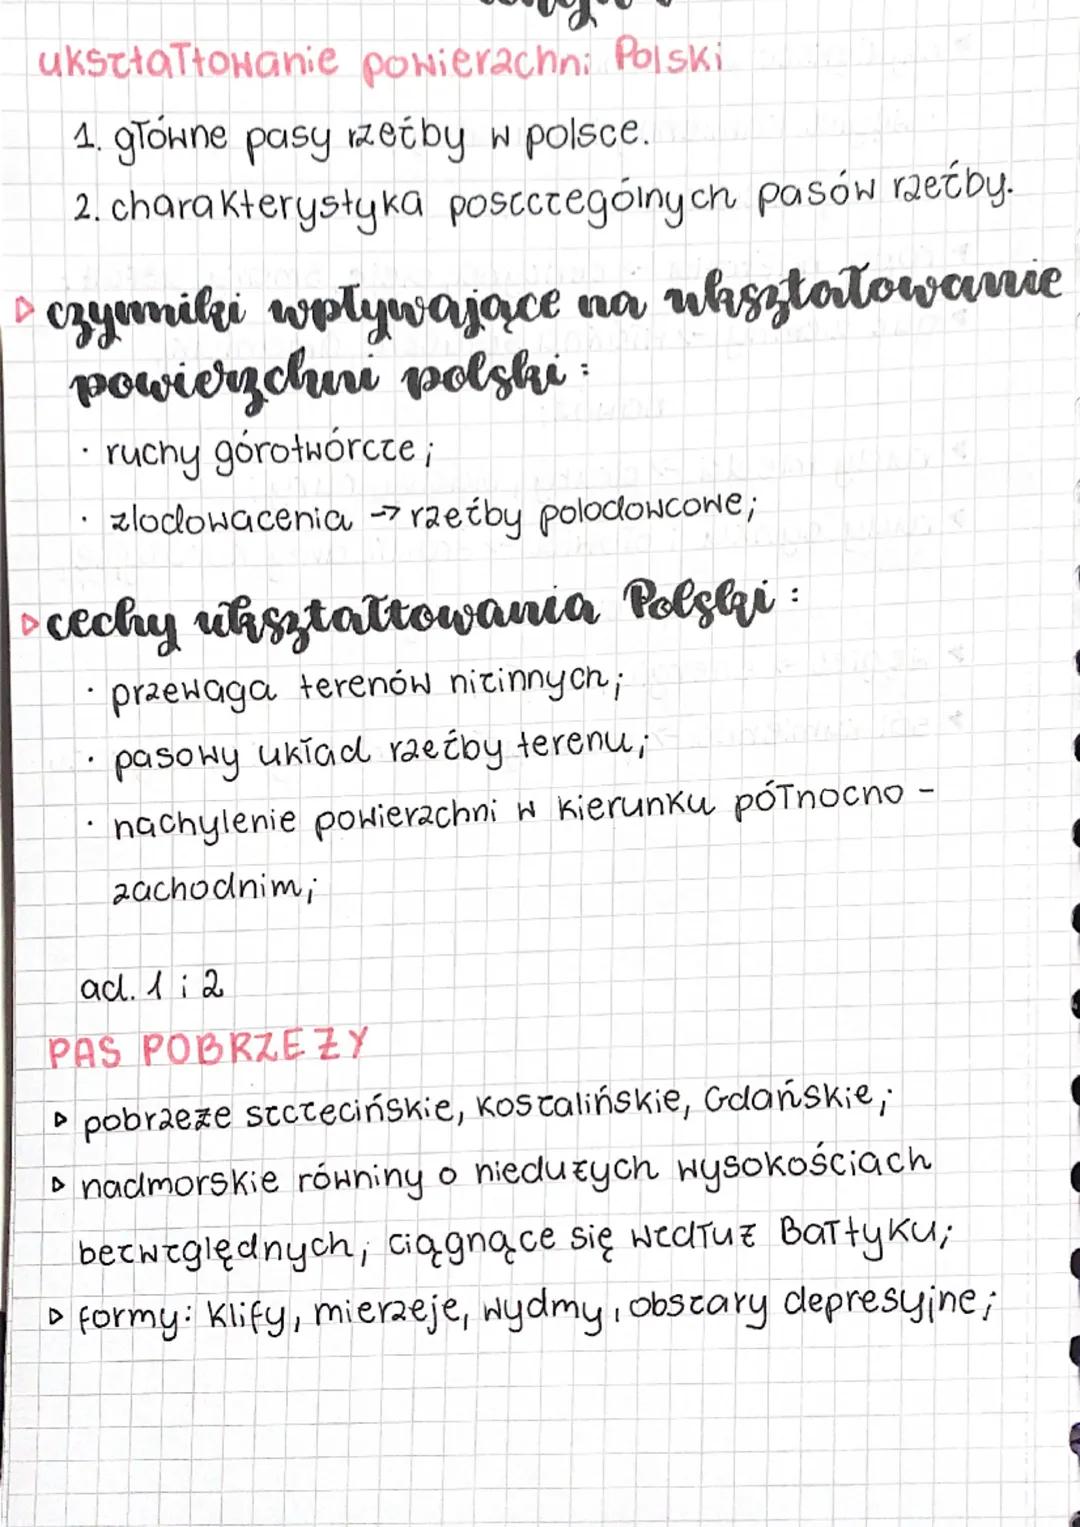 ukształtowanie powierzchni Polski
1. główne pasy rzeźby w polsce.
2. charakterystyka poszczególnych pasów rzeźby.
▷ czynniki wpływające na ukształtowanie
powierzchni polski:
· ruchy górotwórcze;
· zlodowacenia → rzeźby polodowcowe;
▷ cechy ukształtowania Polski:
· przewaga terenów nizinnych;
· pasowy układ rzeźby terenu;
· nachylenie powierzchni w kierunku północno -
zachodnim;
ad. 1 i 2
PAS POBRZEŻY
▷ pobrzeże szczecińskie, koszalińskie, Gdańskie;
▷ nadmorskie równiny o niedużych wysokościach
bezwzględnych; ciągnące się wzdłuż Bałtyku;
▷ formy: klify, mierzeje, wydmy, obszary depresyjne;